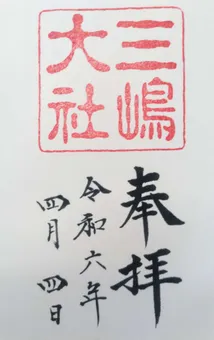 三嶋
大社
奉拝
令和六年
四月四日